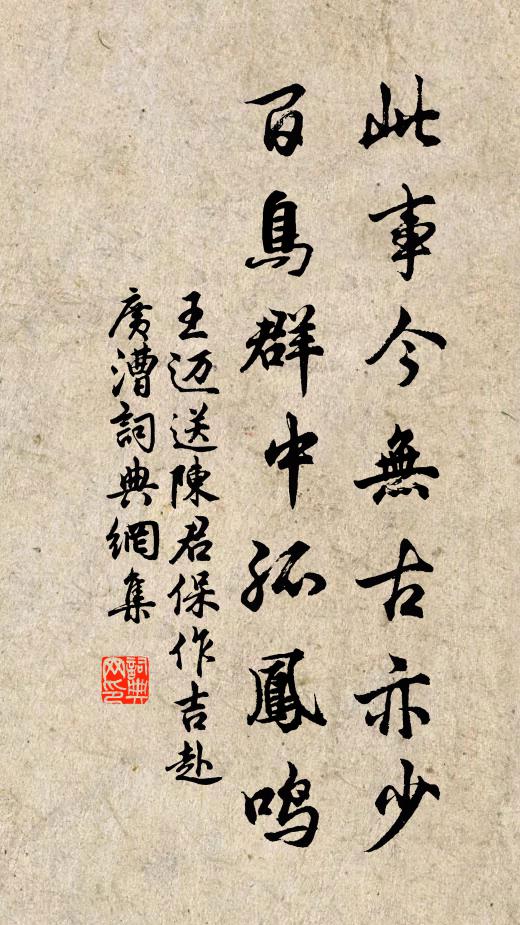 此事今無古亦少
百鳥群中孤鳳鳴
王迈送陳君保作吉赴
广漕詞典網集
詞典网印